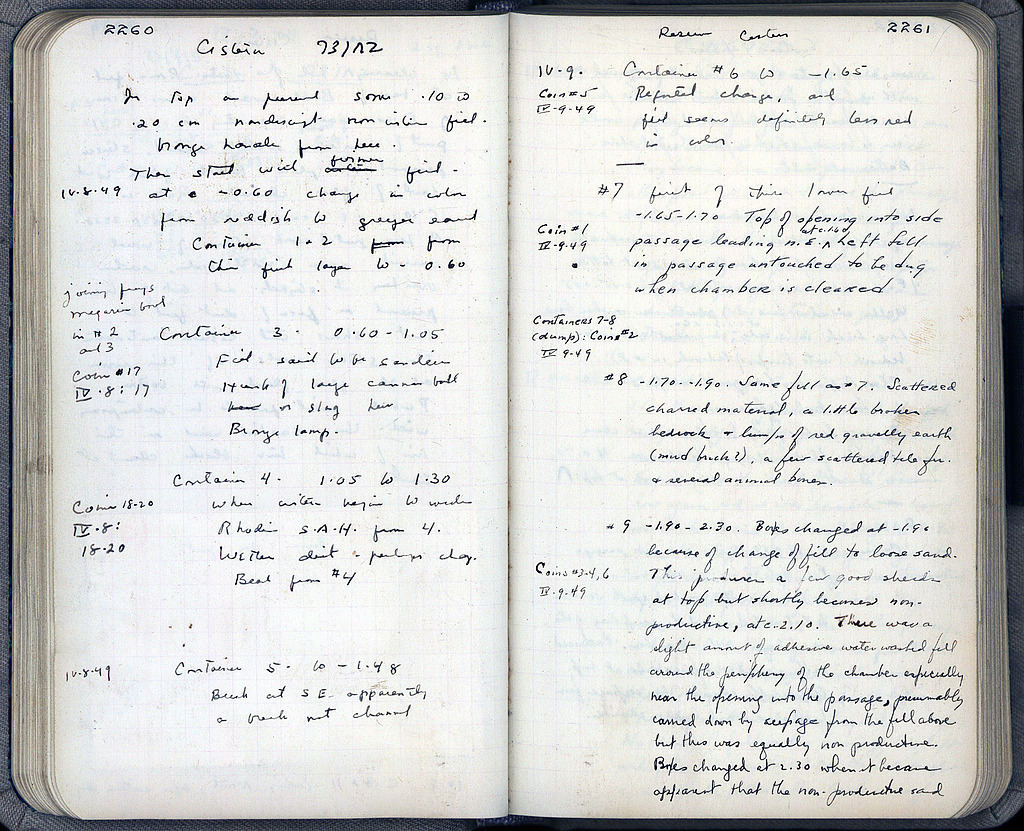 2260
Cistern 73/ΛΖ
In top on present some .10 to
.20 cm nondescript non cistern fill.
bronze handle from here
Then start with former fill.
IV.8.49 at c -0.60 change in color
from reddish to greyer sand
Container 1+2 from
this first layer to - 0.60
joining frags
megarian bowl
in #2
and 3
Container 3. 0.60 - 1.05
Fill said to be sandier
Coin #17
IV.8: 17
Hunk of large cannon ball
or slag here
Bronze lamp.
Container 4. 1.05 to 1.30
Coins 18-20
IV.8:
18-20
when cistern begins to widen
Rhodian S.A.H. from 4.
Wetter dirt - perhaps clay.
Bead from #4
IV.8.49 Container 5. to -1.48
Break at S E. apparently
a break not channel
2261
IV-9. Container #6 to -1.65
Coin #5
IV-9-49
Reported change, and
fill seems definitely less red
in color
#7 first of this lower fill
-1.65-1.70 Top of opening into side
at c. 1.60
Coin #1
IV-9-49
passage leading N.E. Left fill
in passage untouched to be dug
when chamber is cleared
Containers 7-8
(dump): Coin #2
IV 9-49
#8 -1.70--1.90. Same fill as #7. Scattered
charred material, a little broken
bedrock + lumps of red gravelly earth
(mud brick?), a few scattered tile fr.
+ several animal bones.
#9 -1.90-2.30. Boxes changed at -1.90
because of change of fill to loose sand.
Coins #3-4, 6
IV-9-49
This produced a few good sherds
at top but shortly became non-
productive, at c. 2.10. There was a
slight amount of adhesive water washed fill
around the periphery of the chamber especially
near the opening into the passage, presumably
carried down by seepage from the fill above
but this was equally non productive.
Boxes changed at 2.30 when it became
apparent that the non-productive sand